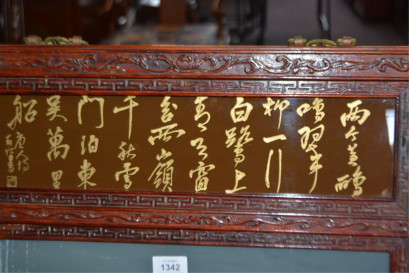 兩个黄鸝
鳴翠
柳一行
白鷺上
青天窗
含西嶺
千秋雪
門泊東
吴萬里
船
1342